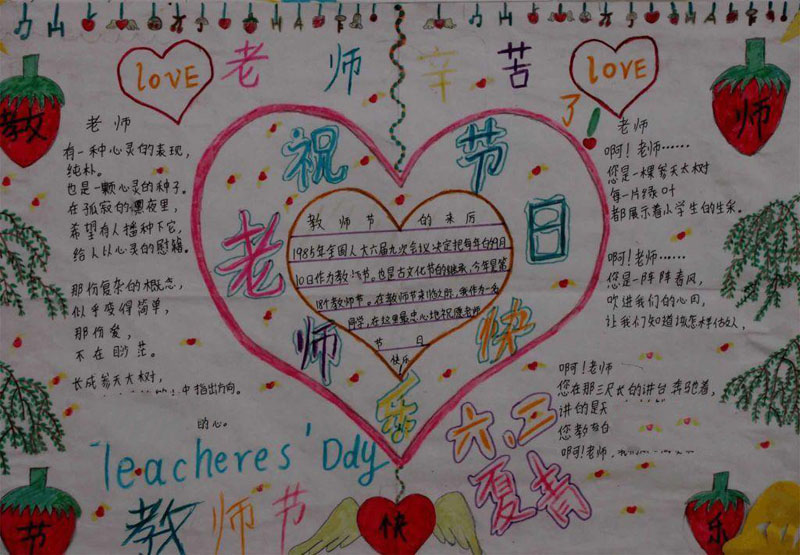 love
老师辛苦了！
love
教
师
老师
有一种心灵的表现，
纯朴。
也是一颗心灵的种子。
在孤寂的里夜里，
希望有人播种下它，
给人以心灵的慰藉。
那份复杂的概念，
似乎变得简单，
那份爱，
不在
长成参天大树，
中指出方向。
的心。
祝
老师
节日
快乐
教师节的来历
1985年全国人大六届九次会议决定把每年的9月
10日作为教师节。也是古文化节的继承，今年是第
18个教师节。在教师节来临之前，我作为一名
同学，在这里最忠心地祝愿老师
节日
快乐
老师
啊！老师……
您是一棵参天大树
每一片绿叶
都展示着小学生的生采。
啊！老师……
您是一阵阵春风，
吹进我们的心田，
让我们知道该怎样做人，
啊！老师
您在那三尺长的讲台奔驰着，
讲的是天
您教育
啊！老师，
Teacheres' Day
教师节
六.三
夏青
节
快
乐